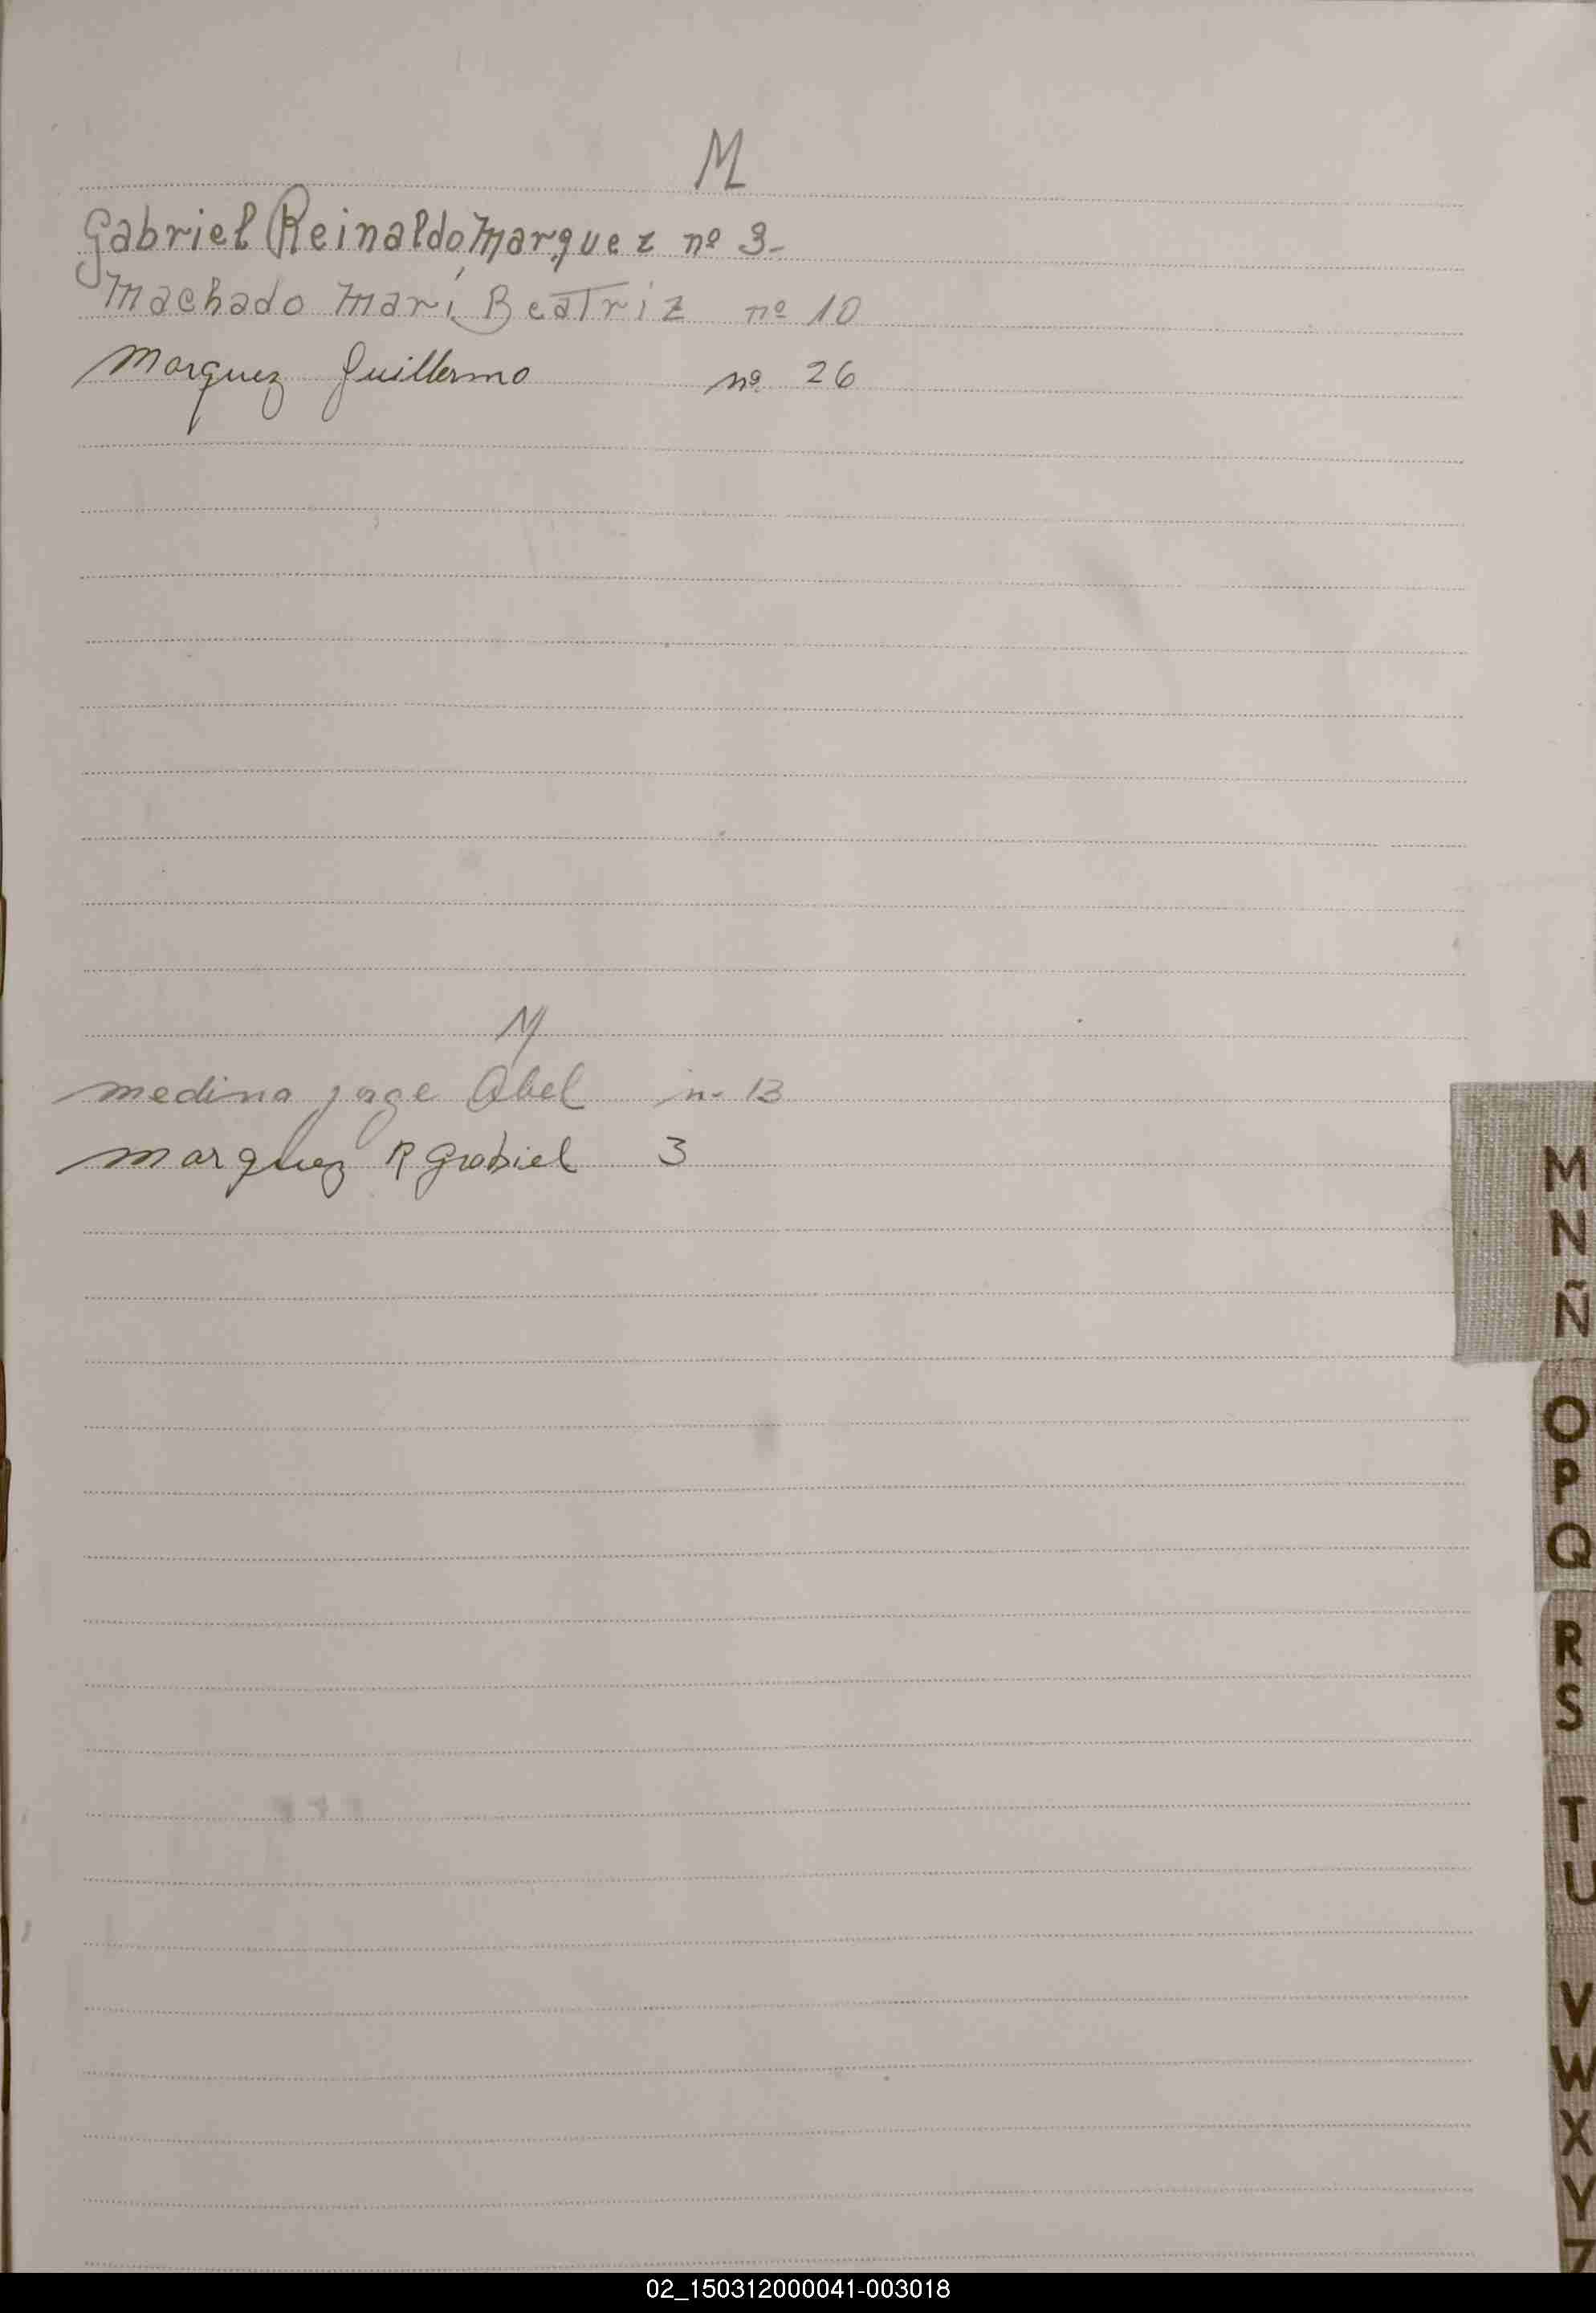 M
Gabriel Reinaldo Marquez nº 3-
Machado Marí Beatriz nº 10
Marquez Guillermo nº 26
M
medina jorge Abel n- 13
marquez R grabiel 3
M
N
Ñ
O
P
Q
R
S
T
U
V
W
X
Y
Z
02_150312000041-003018